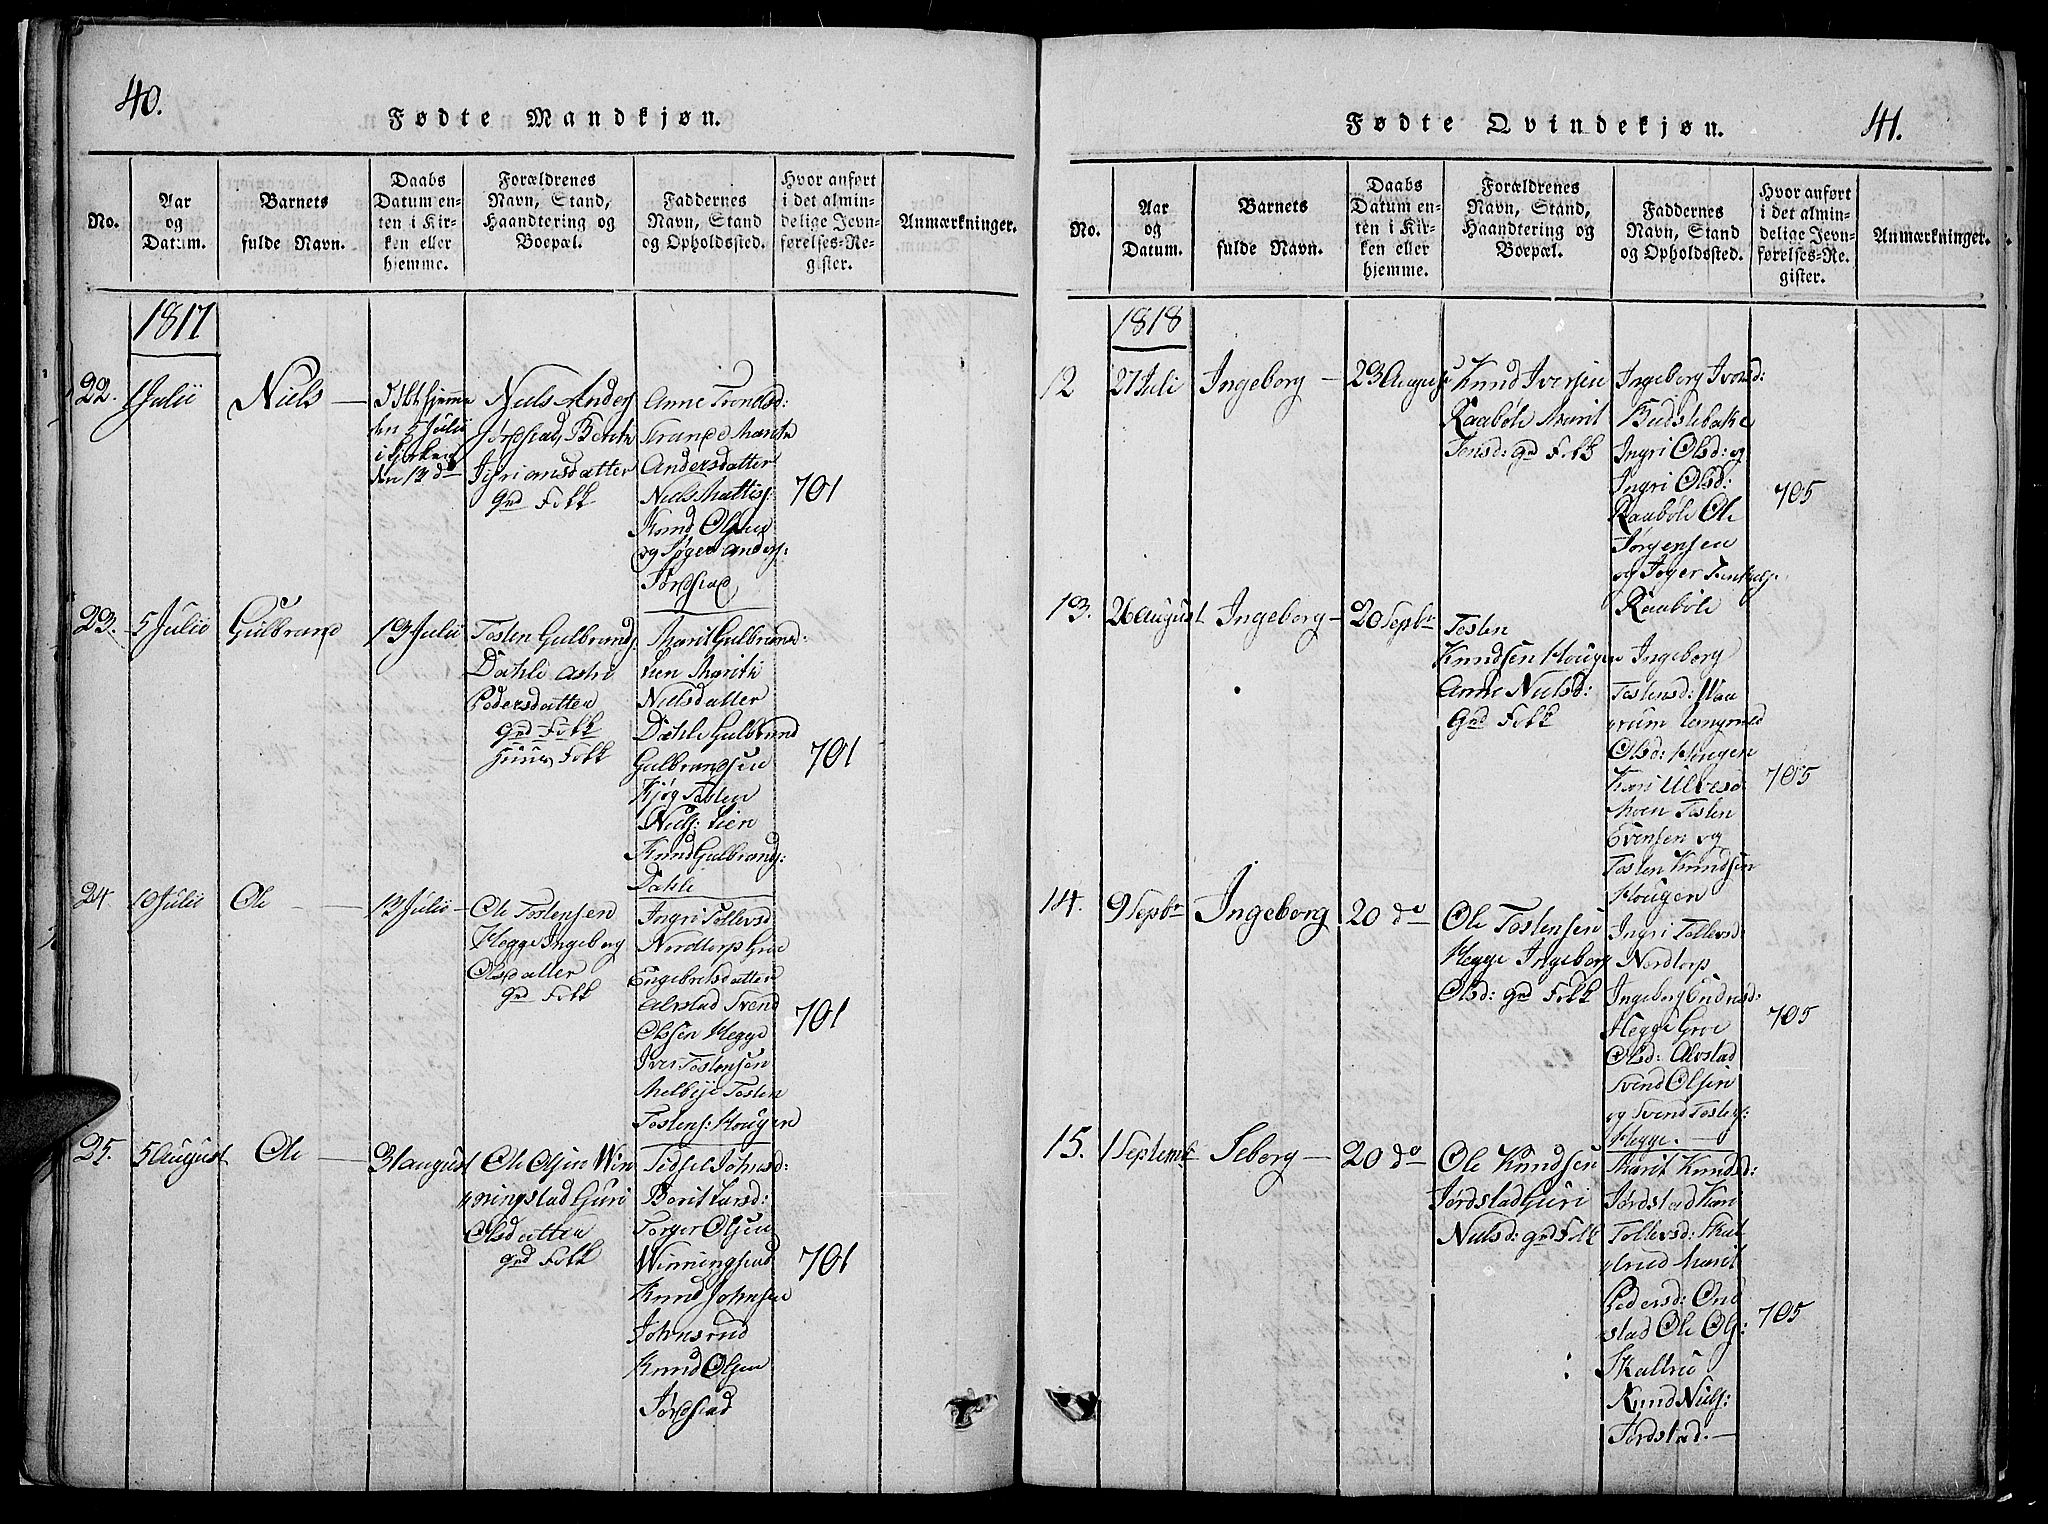 40.
Fødte Mandkjøn.
No.
Aar
og
Datum.
Barnets
fulde Navn.
Daabs
Datum en-
ten i Kir-
ken eller
hjemme.
Forældrenes
Navn, Stand,
Haandtering og
Boepæl.
Faddernes
Navn, Stand
og Opholdssted.
Hvor anført
i det almin-
delige Jevn-
førelses-Re-
gister.
Anmærkninger.
1817
22.
1 Julii
Niels
Døbt hjemme
den 5 Julii
i Kirken
den 13 do
Niels Anders
Jørdstad, Berith
datter
grd Folk
Anne Trondsd:
Trande Marith
Andersdatter
Niels Mattis:
Knud Olsen
og Tøger Anders:
Jørdstad
701
23.
5 Julii
Gulbrand
13 Julii
Tosten Gulbrands:
Dahle Astri
Pedersdatter
grd Folk
Huus Folk
Marit Gulbrands:
Lien Marith
Nielsdatter
Dahle Gulbrand
Gulbrandsen
Kjøg Tosten
Niels: Lien
Knud Gulbrands:
Dahle
701
24
10 Julii
Ole
13 Julii
Ole Tostensen
Hegge Ingeborg
Olsdatter
grd Folk
Ingri Tollevsd
Nordtorp Groe
Engebretsdatter
Alvstad Svend
Olssen Hegge
Iver Tostensen
Melbye Tosten
Tostens: Hougen
701
25.
5 August
Ole
31 August
Ole Olsen Win
ningstad Guri
Olsdatter
grd Folk
Sidsel Johnsd:
Berit Larsd:
Torger Olsen
Winningstad
Knud Johnsen
Johnsrud
Knud Olsen
Jørdstad
701
41.
Fødte Qvindekjøn.
No.
Aar
og
Datum.
Barnets
fulde Navn.
Daabs
Datum en-
ten i Kir-
ken eller
hjemme.
Forældrenes
Navn, Stand,
Haandtering og
Boepæl.
Faddernes
Navn, Stand
og Opholdssted.
Hvor anført
i det almin-
delige Jevn-
førelses-Re-
gister.
Anmærkninger.
1818
12
27 Juli
Ingeborg
23 August
Knud Iversen
Raabøle Marit
Jensd: grd Folk
Ingeborg Iversd:
Budslebakke
Ingri Olsd: og
Ingri Olsd:
Raabøle Ole
Jørgensen
og Tøger
Raabøle
705
13.
26 August
Ingeborg
20 Sepbr
Tosten
Knudsen Hougen
Anne Nielsd:
grd Folk
Ingeborg
Tostensd: Waa
grum
Olsd: Hougen
Kari Ulvesø
Moen Tosten
Evensen og
Tosten Knudsen
Hougen
705
14.
9 Sepbr
Ingeborg
20 do
Ole Tostensen
Hegge Ingeborg
Olsd: grd Folk
Ingri Tollevsd:
Nordtorp
Ingeborg Endresd:
Hegge Groe
Olsd: Alvstad
Svend Olsen
og Svend Tostens:
Hegge.
705
15.
1 Septembr
Seborg
20 do
Ole Knudsen
Jørdstad Guri
Nielsd: grd Folk
Marit Knudsd:
Jørdstad Kari
Tollevsd: Skat
trud Marit
Pedersd: Ond
stad Ole Ols:
Skattru
Knud Niels:
Jørdstad.
705